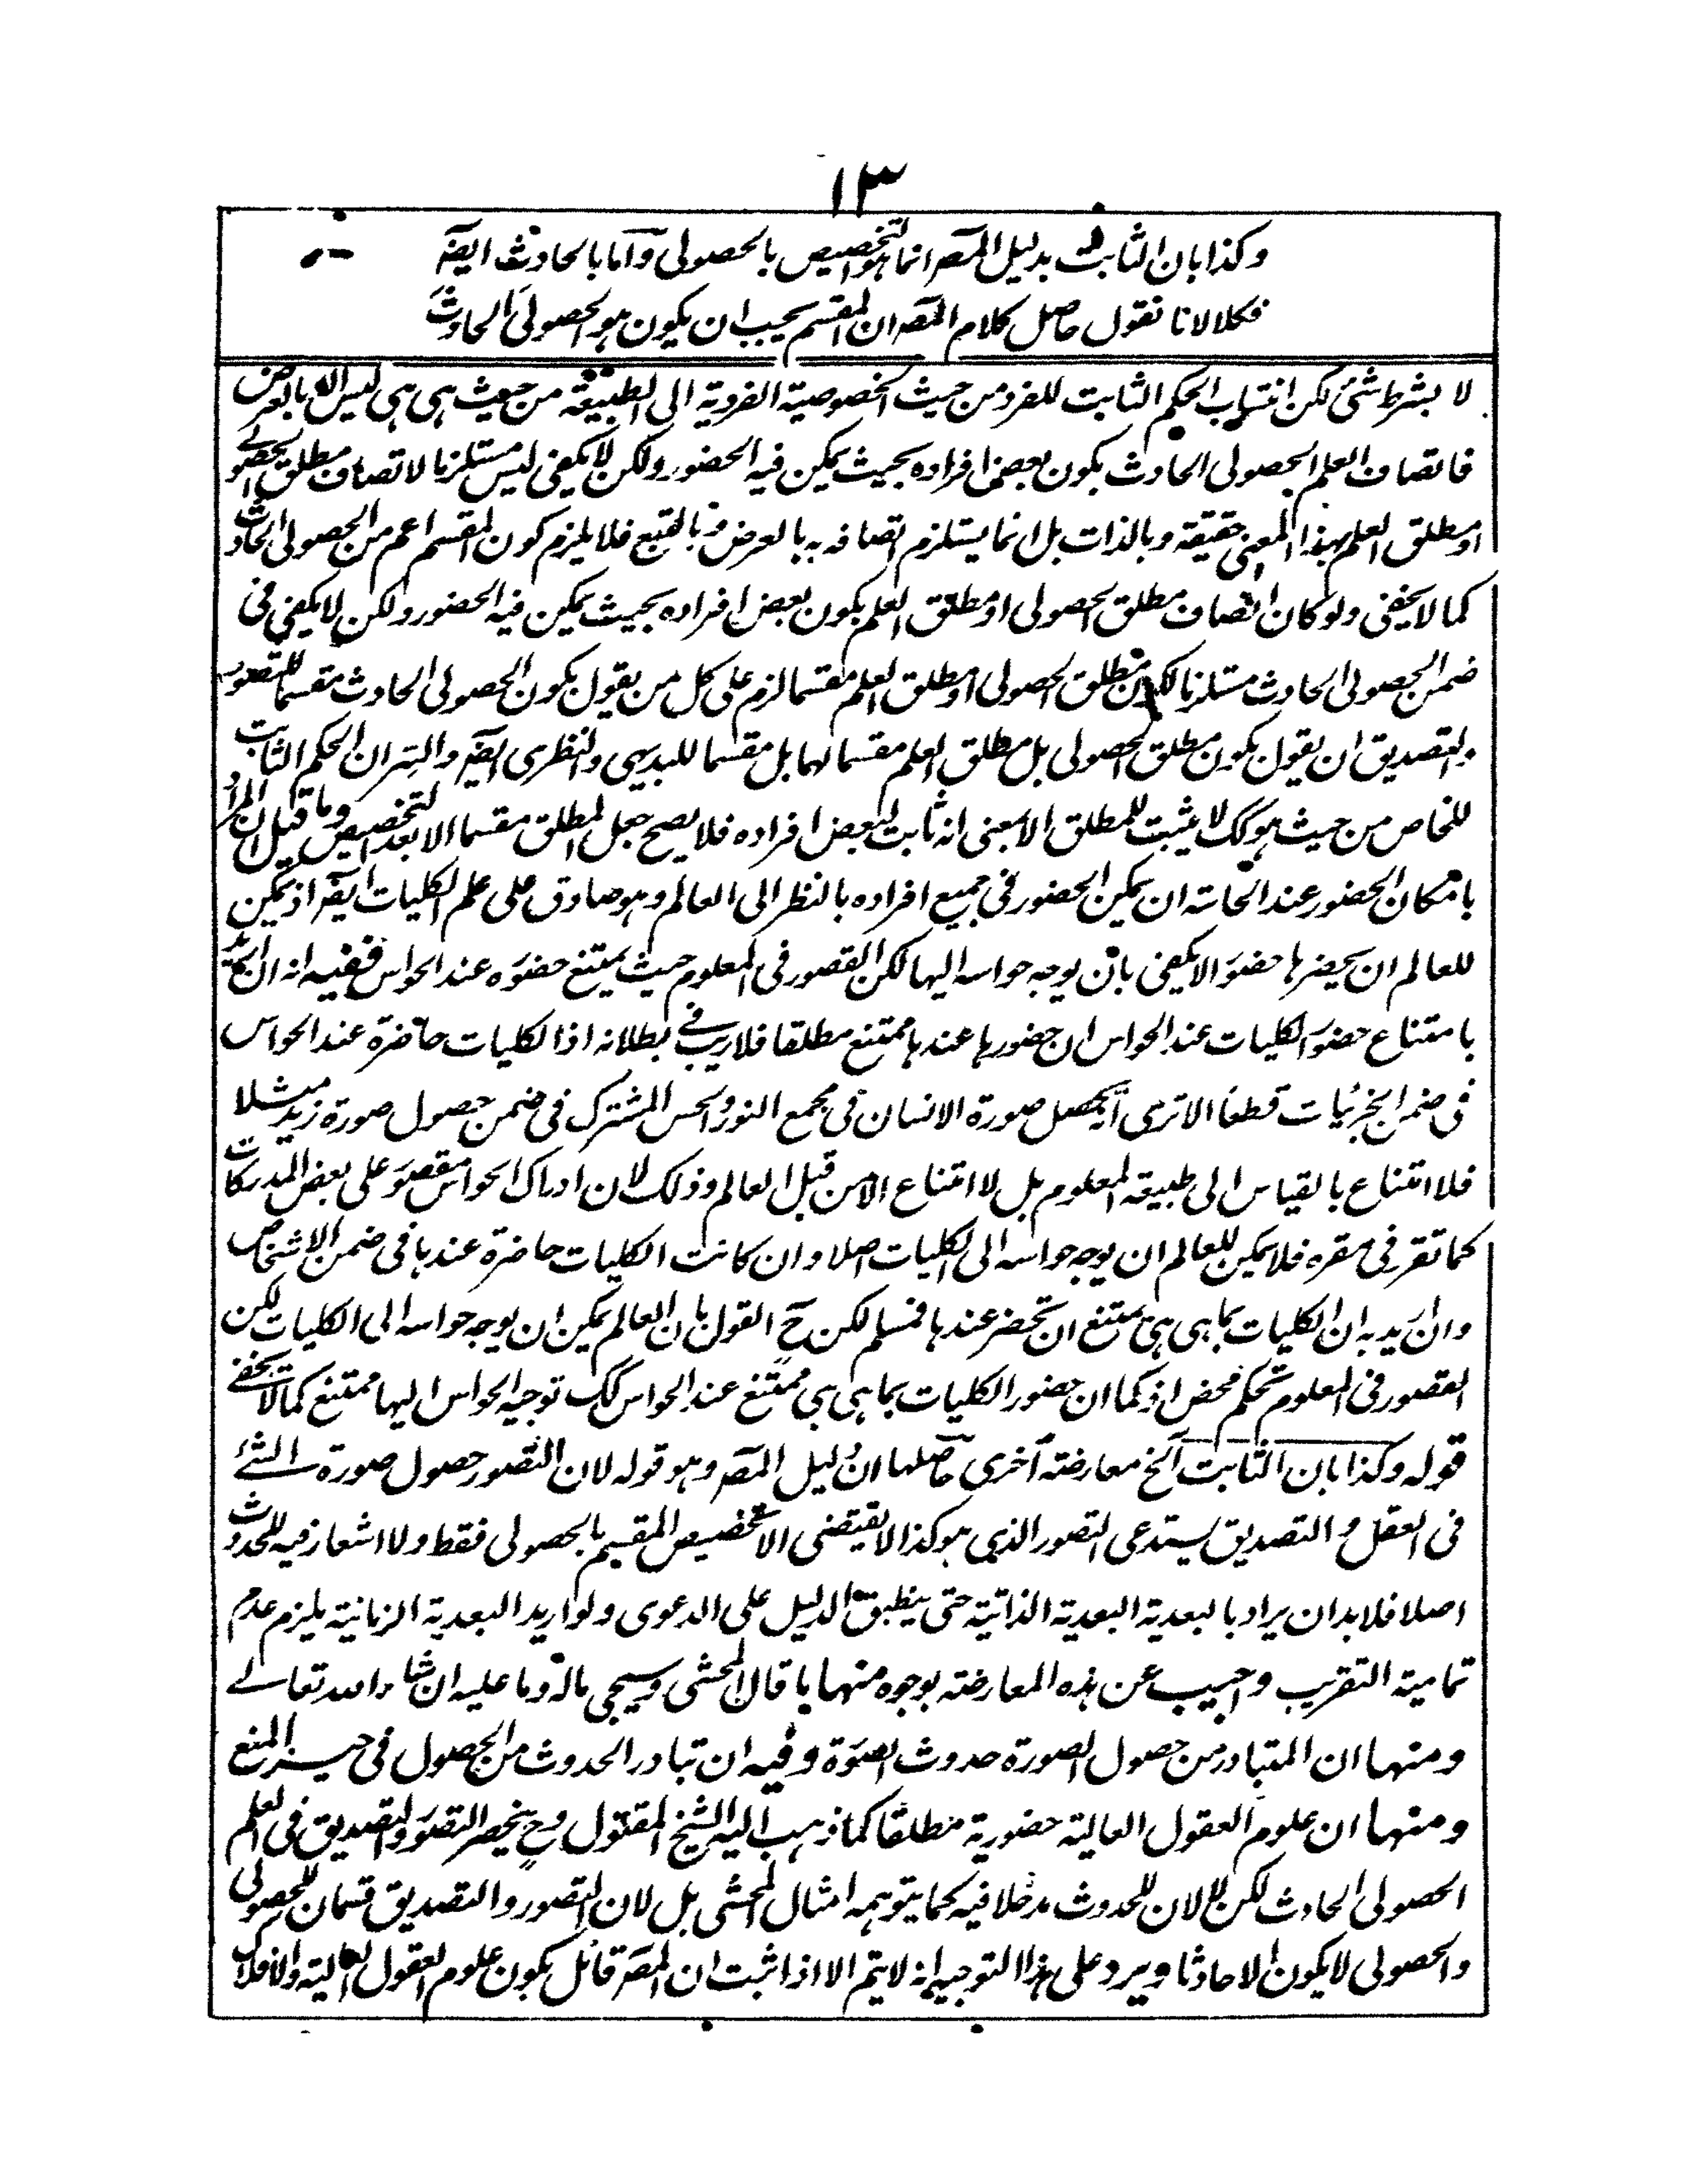 ١٣
وكذا بان الثابت بدليل المصر انما هو التخصيص بالحصولى واما بالحادث ايضا
فكلا لانا نقول حاصل كلام المصر ان المقسم يجب ان يكون هو الحصولى الحادث
لا بشرط شئ لكن انتساب الحكم الثابت للفرد من حيث الخصوصية الفردية الى الطبيعة من حيث هى هى ليس الا بالعرض
فاتصاف العلم الحصولى الحادث بكون بعض افراده بحيث يمكن فيه الحضور ولكن لا يكفى ليس مستلزما لاتصاف مطلق الحصولى
او مطلق العلم بهذا المعنى حقيقة وبالذات بل انما يستلزم اتصافه به بالعرض وبالتبع فلا يلزم كون المقسم اعم من الحصولى الحادث
كما لا يخفى ولو كان اتصاف مطلق الحصولى او مطلق العلم بكون بعض افراده بحيث يمكن فيه الحضور ولكن لا يكفى فى
ضمن الحصولى الحادث مستلزما لكون مطلق الحصولى او مطلق العلم مقسما لزم على كل من يقول بكون الحصولى الحادث مقسما للتصور
والتصديق ان يقول بكون مطلق الحصولى بل مطلق العلم مقسما لهما بل مقسما للبديهى والنظرى ايضا والسر ان الحكم الثابت
للخاص من حيث هو كك لا يثبت للمطلق الا بمعنى انه ثابت لبعض افراده فلا يصح جعل المطلق مقسما الا بعد التخصيص وما قيل ان المراد
بامكان الحضور عند الحاسة ان يمكن الحضور فى جميع افراده بالنظر الى العالم وهو صادق على علم الكليات ايضا اذ يمكن
للعالم ان يحضرها حضورا لا يكفى بان يوجه حواسه اليها لكن القصور فى المعلوم حيث يمتنع حضوره عند الحواس ففيه انه ان اريد
بامتناع حضور الكليات عند الحواس ان حضورها عندها ممتنع مطلقا فلا ريب فى بطلانه اذ الكليات حاضرة عند الحواس
فى ضمن الجزئيات قطعا الا ترى انه يحصل صورة الانسان فى مجمع النور والحس المشترك فى ضمن حصول صورة زيد مثلا
فلا امتناع بالقياس الى طبيعة المعلوم بل لا امتناع الا من قبل العالم وذلك لان ادراك الحواس مقصور على بعض المدركات
كما تقرر فى مقره فلا يمكن للعالم ان يوجه حواسه الى الكليات اصلا وان كانت الكليات حاضرة عندها فى ضمن الاشخاص
وان اريد به ان الكليات بما هى هى يمتنع ان تحضر عندها فمسلم لكن ح القول بان العالم يمكن ان يوجه حواسه الى الكليات لكن
القصور فى المعلوم تحكم محض اذ كما ان حضور الكليات بما هى هى ممتنع عند الحواس كك توجيه الحواس اليها ممتنع كما لا يخفى
قوله وكذا بان الثابت آلخ معارضة اخرى حاصلها ان دليل المصر وهو قوله لان التصور حصول صورة الشئ
فى العقل والتصديق يستدعى التصور الذى هو كذا لا يقتضى الا تخصيص المقسم بالحصولى فقط ولا اشعار فيه للحدوث
اصلا فلا بد ان يراد بالبعدية البعدية الذاتية حتى ينطبق الدليل على الدعوى ولو اريد البعدية الزمانية يلزم عدم
تمامية التقريب واجيب عن هذه المعارضة بوجوه منها ما قال المحشى وسيجى ماله وما عليه ان شاء الله تعالى
ومنها ان المتبادر من حصول الصورة حدوث الصورة وفيه ان تبادر الحدوث من الحصول فى حيز المنع
ومنها ان علوم العقول العالية حضورية مطلقا كما ذهب اليه الشيخ المقتول وح ينحصر التصور والتصديق فى العلم
الحصولى الحادث لكن لا لان للحدوث مدخلا فيه كما يتوهمه امثال المحشى بل لان التصور والتصديق قسمان للحصولى
والحصولى لا يكون الا حادثا ويرد على هذا التوجيه انه لا يتم الا اذا ثبت ان المصر قائل بكون علوم العقول العالية والافلاك